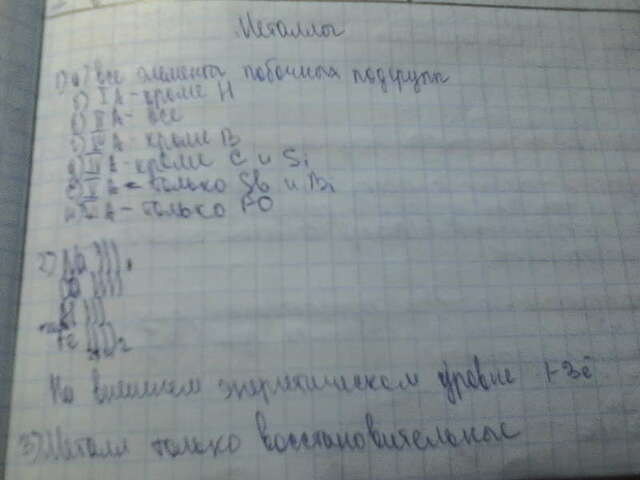 Металлы
1) а) все элементы побочных подгрупп
б) I А - кроме Н
в) II А - все
г) III А - кроме В
д) IV А - кроме С и Si
V А - только Sb и Bi
VI А - только PO
2) Na )))
Fe ))))2
На внешнем энергетическом уровне 1-3ē
3) Металл только восстановительные